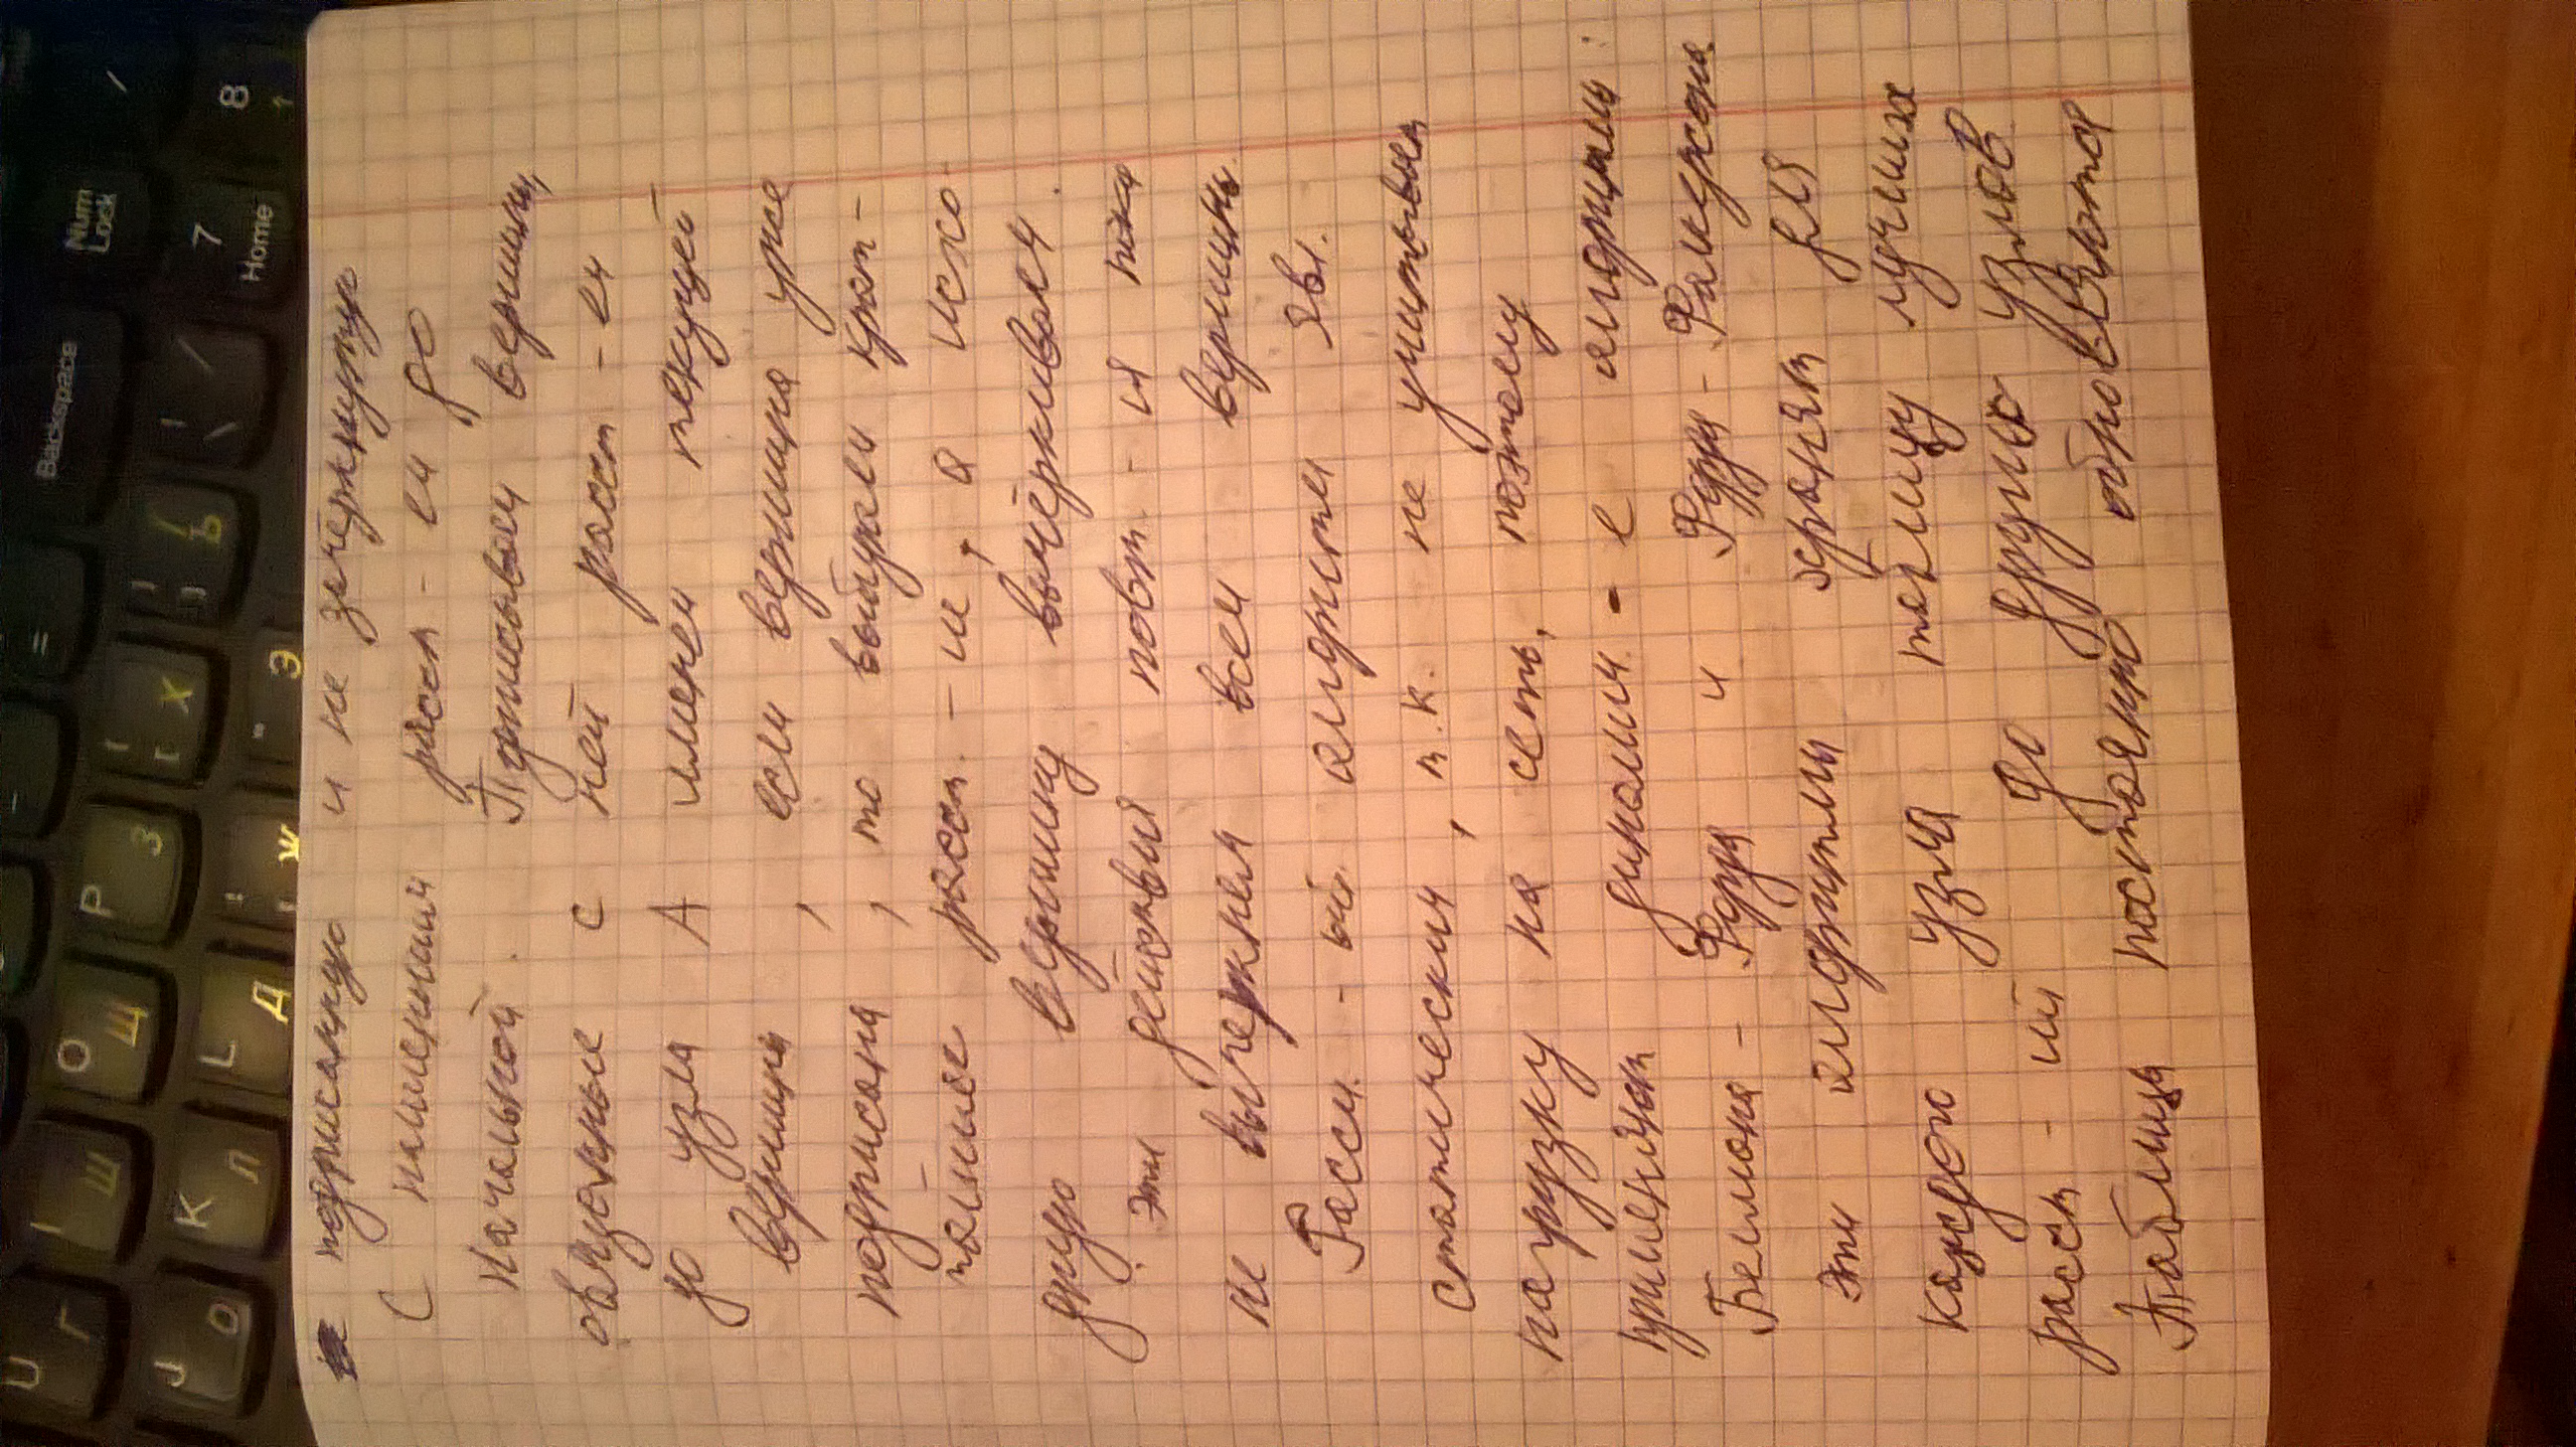 U Г I Ш O Щ P З { [ Х } ] Ъ = Backspace Num Lock /
J О K Л L Д : ; Ж " Э | \ / 7 Home 8
подписанную и не зачеркнутую
С наименьшим расст-ем до
начальной. Подписываем вершины,
связанные с ней расст-ем
до узла А именем текущей
вершины, если вершина уже
подписана, то выбираем крат-
чайшее расст.-ие, а исхо
дную вершину вычёркиваем.
Эти действия повт.-ся пока
не вычеркнем всем вершины.
Рассм.-ый алгоритм явл.
статическим, т.к. не учитывает
нагрузку на сеть, поэтому
применяют динамич.-е алгоритмы:
Беллмана-Форда и Форда-Фалкерсона.
Эти алгоритмы хранят для
каждого узла таблицу лучших
расст-ий до других узлов
Таблица постоянно обновляются